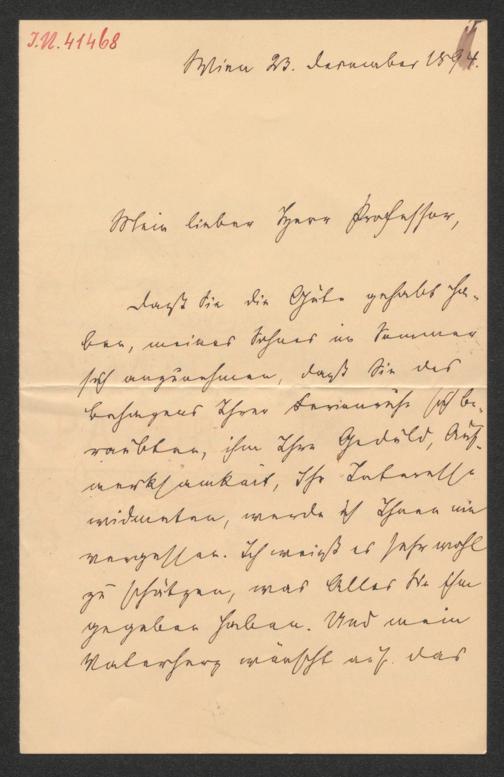 J.N. 41468
Wien 23. Dezember 1894.
Mein lieber Herr Professor,
daß Sie die Güte gehabt ha-
ben, meines Sohnes im Sommer
sich anzunehmen, daß Sie des
Behagens Ihrer Ferienruhe sich be-
raubten, ihm Ihre Geduld, Auf-
merksamkeit, Ihr Interesse
widmeten, werde ich Ihnen nie
vergessen. Ich weiß es sehr wohl
zu schätzen, was Alles Sie ihm
gegeben haben. Und mein
Vaterherz wünscht auf das